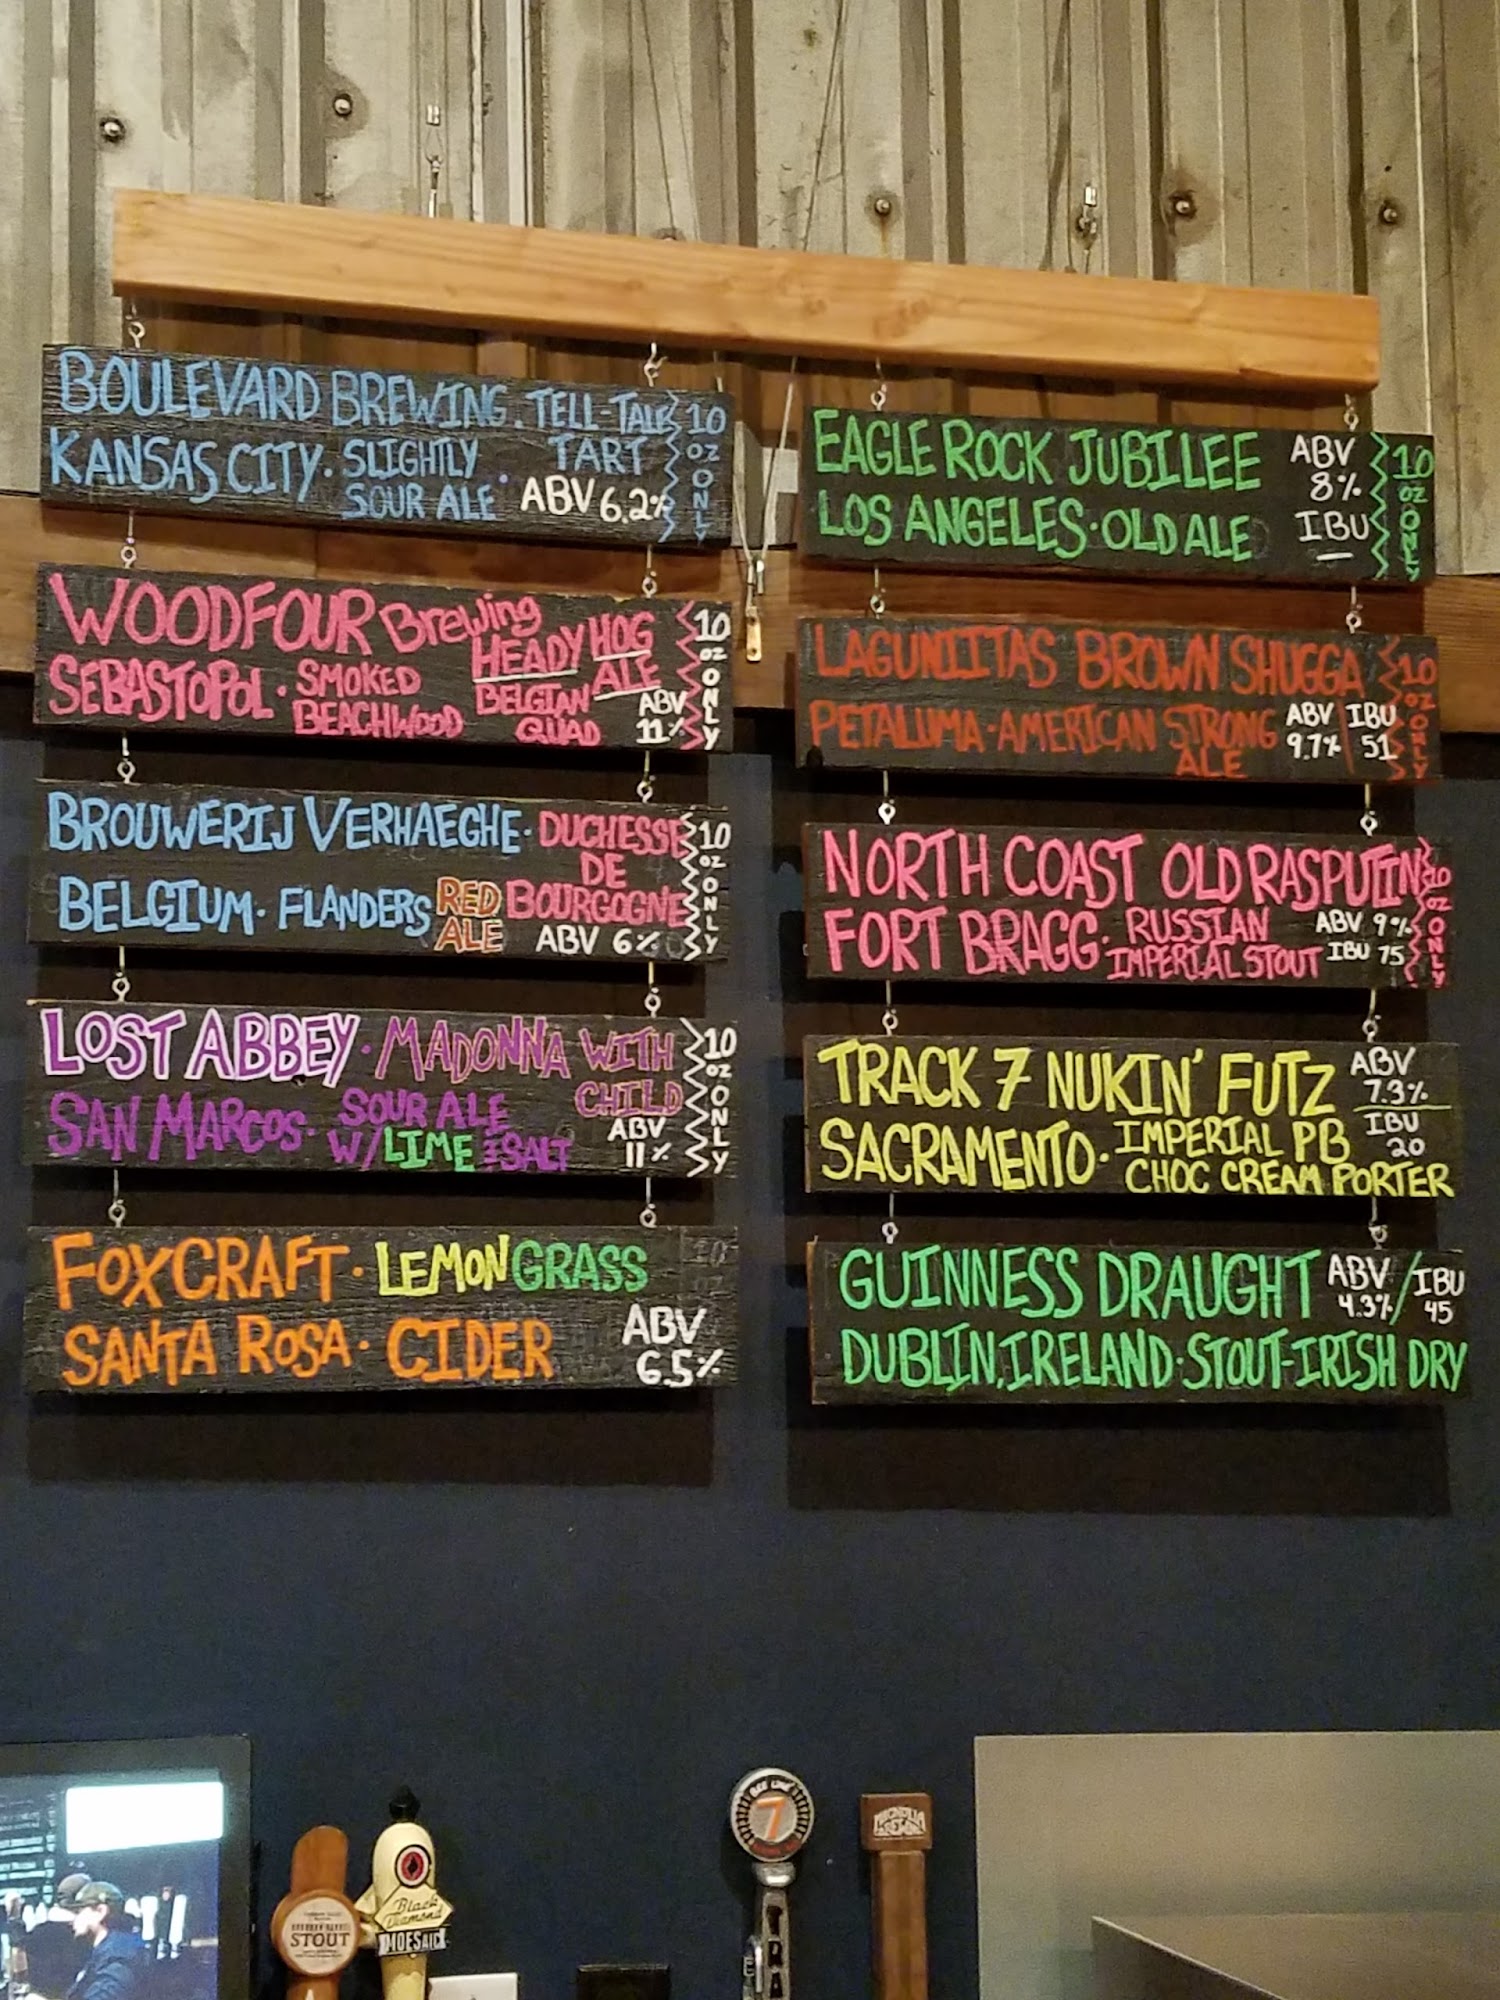 BOULEVARD BREWING. TELL-TALE TART
KANSAS CITY · SLIGHTLY SOUR ALE · ABV 6.2%
10 OZ ONLY
WOODFOUR Brewing HEADY HOG ALE
SEBASTOPOL · SMOKED BEACHWOOD BELGIAN QUAD
ABV 11%
10 OZ ONLY
BROUWERIJ VERHAEGHE · DUCHESSE DE BOURGOGNE
BELGIUM · FLANDERS RED ALE
ABV 6%
10 OZ ONLY
LOST ABBEY · MADONNA WITH CHILD
SAN MARCOS · SOUR ALE W/ LIME SALT
ABV 11%
10 OZ ONLY
FOXCRAFT · LEMONGRASS
SANTA ROSA · CIDER
ABV 6.5%
EAGLE ROCK JUBILEE
LOS ANGELES · OLD ALE
ABV 8%
IBU —
10 OZ ONLY
LAGUNIITAS BROWN SHUGGA
PETALUMA · AMERICAN STRONG ALE
ABV 9.7% IBU 51
10 OZ ONLY
NORTH COAST OLD RASPUTIN
FORT BRAGG · RUSSIAN IMPERIAL STOUT
ABV 9%
IBU 75
10 OZ ONLY
TRACK 7 NUKIN' FUTZ
SACRAMENTO · IMPERIAL PB CHOC CREAM PORTER
ABV 7.3%
IBU 20
GUINNESS DRAUGHT
ABV 4.3% / IBU 45
DUBLIN, IRELAND · STOUT-IRISH DRY
STOUT
Black Diamond
MOESAIC
BEE LINE
7
TRA
MAGNOLIA